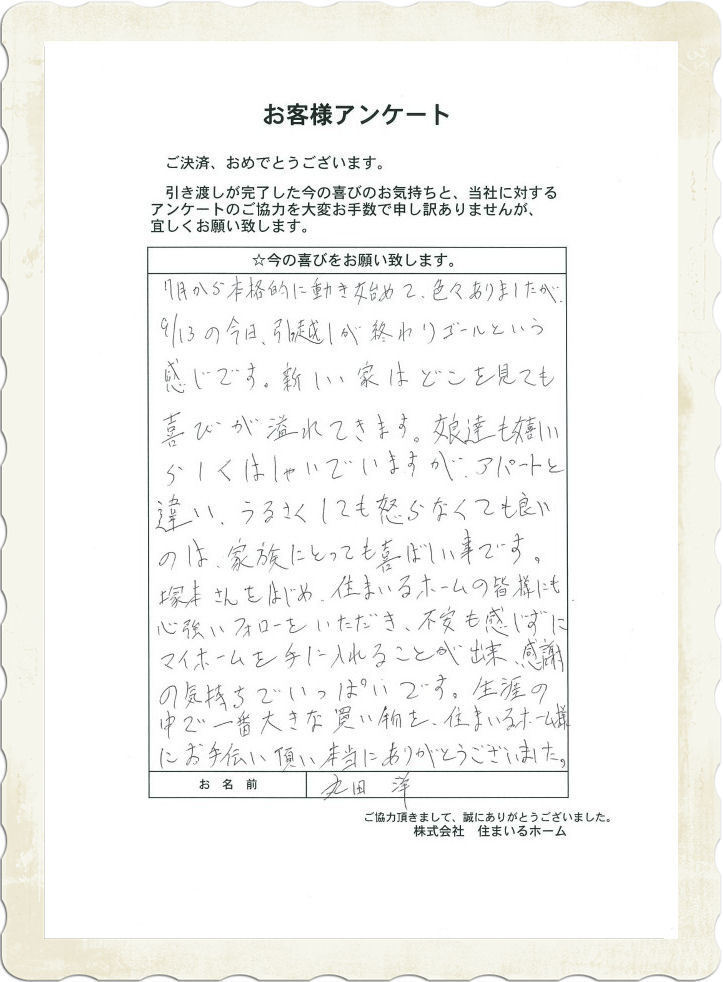 お客様アンケート
ご決済、おめでとうございます。
引き渡しが完了した今の喜びのお気持ちと、当社に対する
アンケートのご協力を大変お手数で申し訳ありませんが、
宜しくお願い致します。
☆今の喜びをお願い致します。
7月から本格的に動き始めて、色々ありましたが、
9/13の今日、引越しが終わりゴールという
感じです。新しい家はどこを見ても
喜びが溢れてきます。娘達も嬉しい
らしくはしゃいでいますが、アパートと
違い、うるさくしても怒らなくても良い
のは、家族にとっても喜ばしい事です。
塚本さんをはじめ、住まいるホームの皆様にも
心強いフォローをいただき、不安も感じずに
マイホームを手に入れることが出来、感謝
の気持ちでいっぱいです。生涯の
中で一番大きな買い物を、住まいるホーム様
にお手伝い頂い本当にありがとうございました。
お名前
丸田 洋
ご協力頂きまして、誠にありがとうございました。
株式会社 住まいるホーム